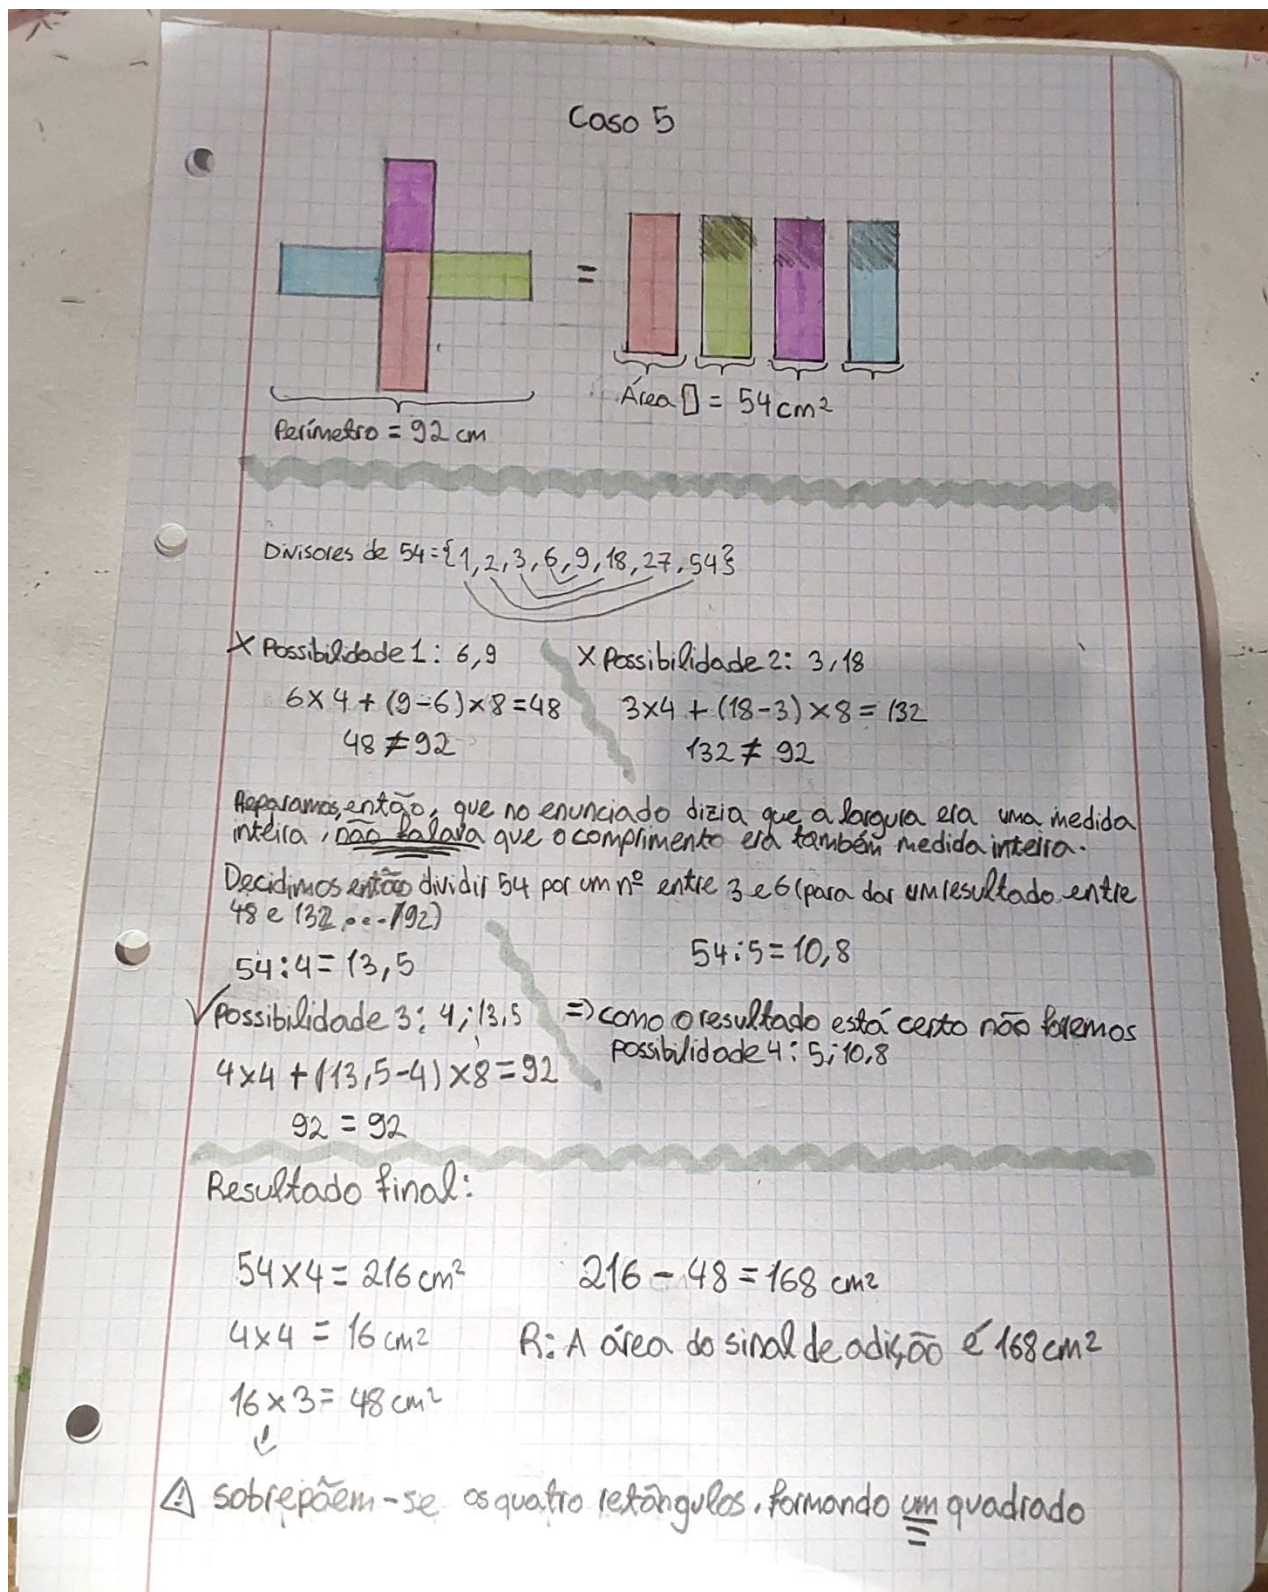 Caso 5
=
Perímetro = 92 cm
Área ▯ = 54 cm²
Divisores de 54 = {1, 2, 3, 6, 9, 18, 27, 54}
X Possibilidade 1: 6,9
6 x 4 + (9-6) x 8 = 48
48 ≠ 92
X Possibilidade 2: 3,18
3x4 + (18-3) x 8 = 132
132 ≠ 92
Reparamos, então, que no enunciado dizia que a largura era uma medida
inteira, não falava que o comprimento era também medida inteira.
Decidimos então dividir 54 por um nº entre 3 e 6 (para dar um resultado entre
48 e 132 ... 92)
54 : 4 = 13,5
54 : 5 = 10,8
✓ Possibilidade 3: 4; 13,5
4x4 + (13,5-4) x 8 = 92
92 = 92
=> como o resultado está certo não faremos
possibilidade 4: 5; 10,8
Resultado final:
54 x 4 = 216 cm²
4 x 4 = 16 cm²
16 x 3 = 48 cm²
216 - 48 = 168 cm²
R: A área do sinal de adição é 168 cm²
⚠ sobrepõem-se os quatro retângulos, formando um quadrado